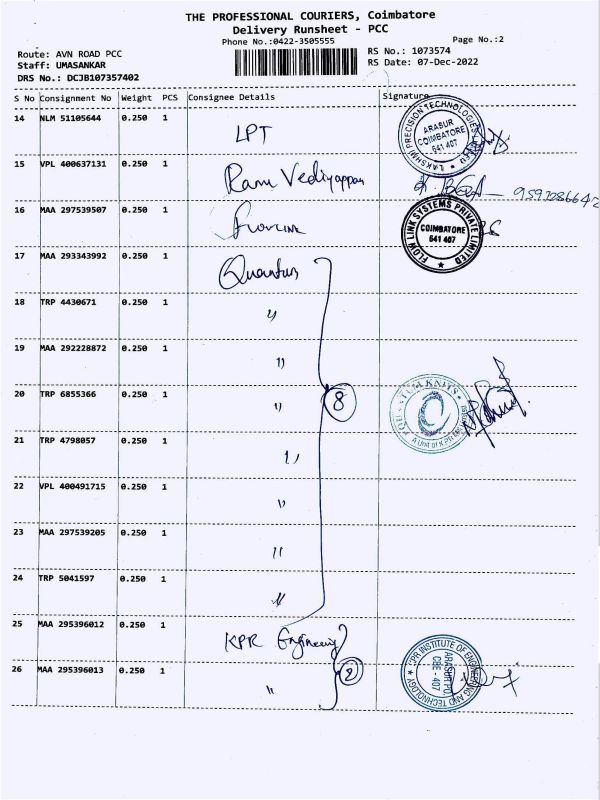 THE PROFESSIONAL COURIERS, Coimbatore
Delivery Runsheet - PCC
Phone No.:0422-3505555
Page No.:2
Route: AVN ROAD PCC
RS No.: 1073574
Staff: UMASANKAR
RS Date: 07-Dec-2022
DRS No.: DCJB107357402
S No Consignment No Weight PCS Consignee Details Signature
14 NLM 51105644 0.250 1 LPT
LAKSHMI PRECISION TECHNOLOGIES
ARASUR
COIMBATORE
641 407
15 VPL 400637131 0.250 1 Ram Vediyappan
16 MAA 297539507 0.250 1 Flowlink
FLOW LINK SYSTEMS PRIVATE LIMITED
COIMBATORE
641 407
17 MAA 293343992 0.250 1 Quantum
18 TRP 4430671 0.250 1 "
19 MAA 292228872 0.250 1 "
20 TRP 6855366 0.250 1 " 8
QUANTUM KNITS
21 TRP 4798057 0.250 1 "
22 VPL 400491715 0.250 1 "
23 MAA 297539205 0.250 1 "
24 TRP 5041597 0.250 1 "
25 MAA 295396012 0.250 1 KPR Engineering
26 MAA 295396013 0.250 1 " 2
KPR INSTITUTE OF ENGINEERING AND TECHNOLOGY
ARASUR PO
CBE - 407